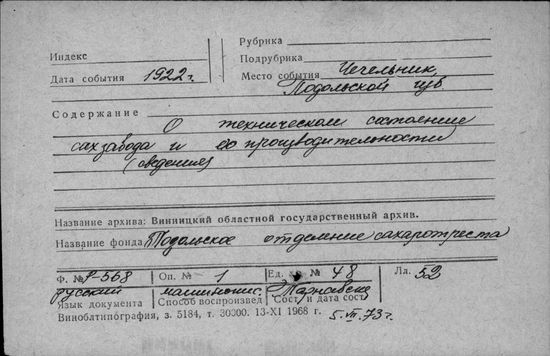 Индекс
Рубрика
Подрубрика
Дата события 1922 г.
Место события Чечельник,
Подольской губ.
Содержание О техническом состоянии
сахзавода и его производительности
(сведения)
Название архива: Винницкий областной государственный архив.
Название фонда Подольское отделение сахаротреста
Ф. № Р-568 Оп. № 1 Ед. хр. № 48 Лл. 52
русский машинопис.
Язык документа Способ воспроизвед Сост. и дата сост.
Виноблтипография, з. 5184, т. 30000. 13-XI 1968 г. 5.VII.73 г.